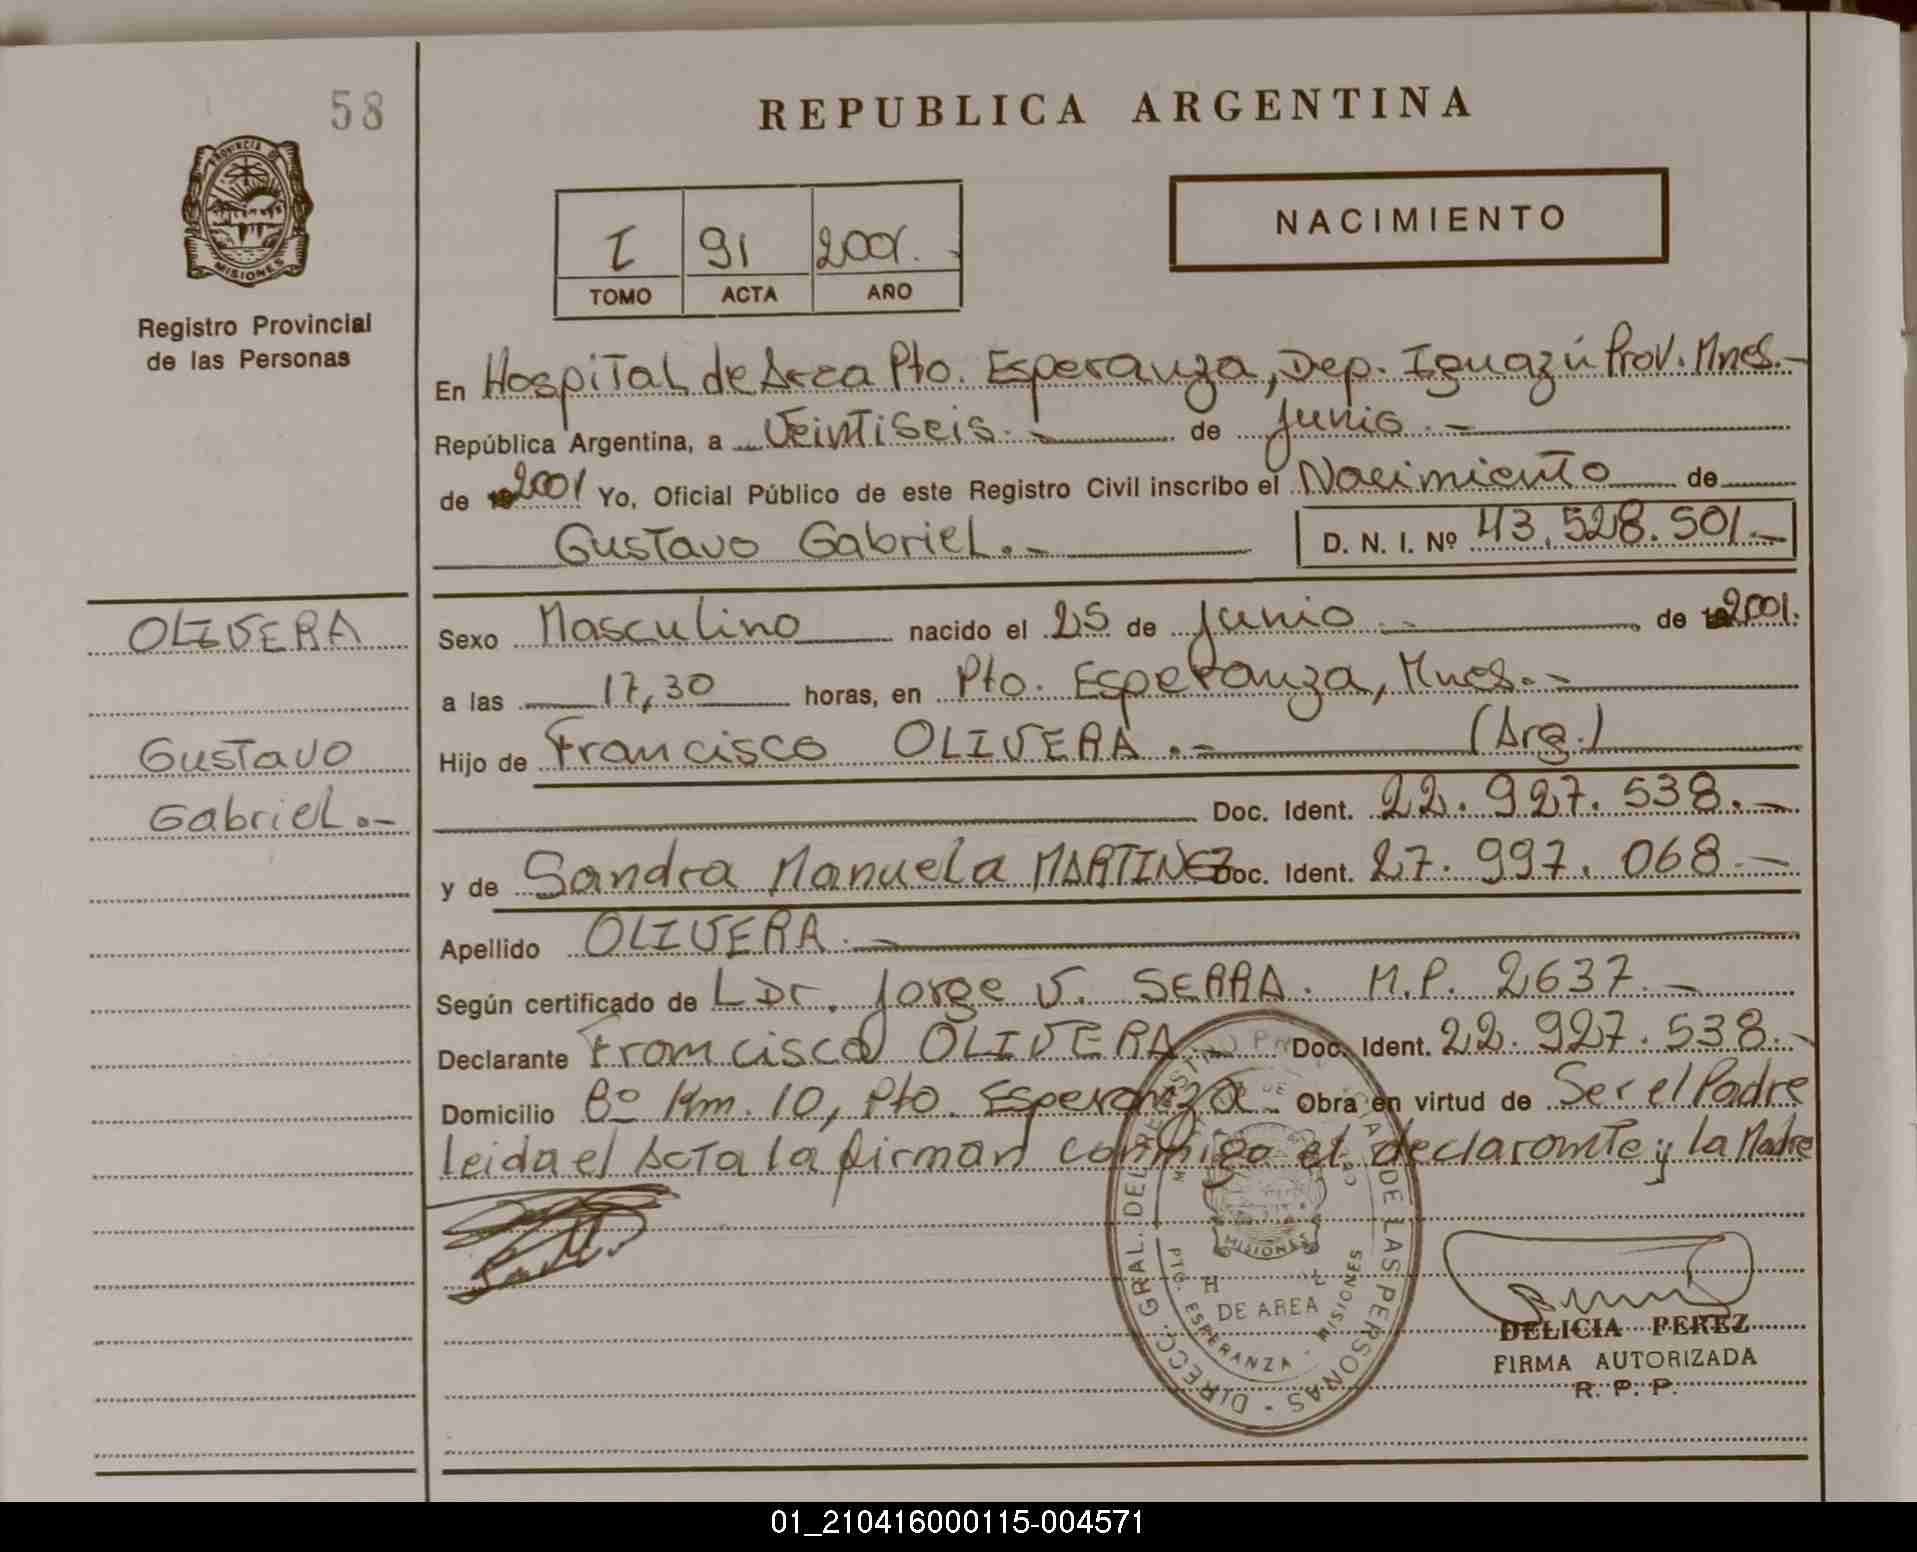 58
REPUBLICA ARGENTINA
PROVINCIA DE
MISIONES
Registro Provincial
de las Personas
NACIMIENTO
I 91 2001.-
TOMO ACTA AÑO
En Hospital de Area Pto. Esperanza, Dep. Iguazú Prov. Mnes.-
República Argentina, a Veintiseis.- de junio.-
de 2001 Yo, Oficial Público de este Registro Civil inscribo el Nacimiento de
Gustavo Gabriel.- D. N. I. Nº 43.528.501.-
OLIVERA
Gustavo
Gabriel.-
Sexo Masculino nacido el 25 de junio.- de 2001.
a las 17,30 horas, en Pto. Esperanza, Mnes.-
Hijo de Francisco OLIVERA.- (Arg.)
Doc. Ident. 22.927.538.-
y de Sandra Manuela MARTINEZ Doc. Ident. 27.997.068.-
Apellido OLIVERA.-
Según certificado de L Dr. Jorge V. SERRA. M.P. 2637.-
Declarante Francisco OLIVERA.- Doc. Ident. 22.927.538.-
Domicilio Bº Km. 10, Pto. Esperanza. Obra en virtud de Ser el Padre
Leida el Acta la firman conmigo el declarante y la Madre
DIRECC. GRAL. DEL REGISTRO DE LAS PERSONAS
MISIONES
DE AREA
PTO. ESPERANZA - MISIONES
DELICIA PEREZ
FIRMA AUTORIZADA
R. P. P.
01_210416000115-004571